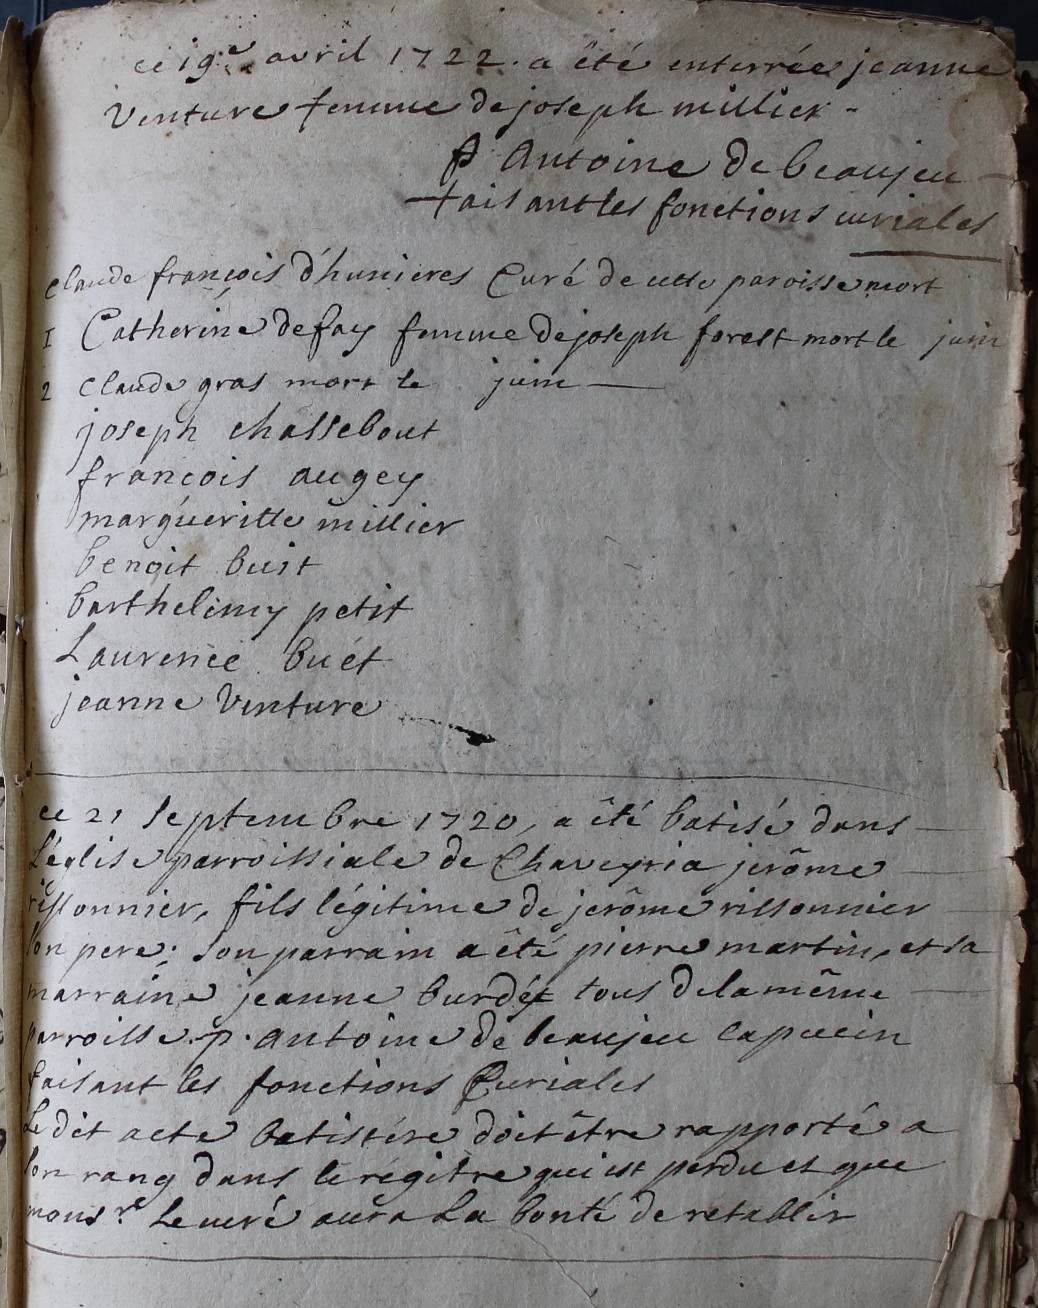 ce 19e avril 1722. a êté enterrée jeanne
Venture femme de joseph millier -
P Antoine de beaujeu
faisant les fonctions curiales
Claude françois d'hunieres Curé de cette paroisse mort
1 Catherine defay femme de joseph forest mort le juin
2 Claude gras mort le juin
joseph chassebout
francois augey
margueritte millier
benoit buit
barthelimy petit
Laurence buét
jeanne Venture
ce 21 septembre 1720, a êté batisé dans
L'église parroissiale de Chaveyria jerôme
rissonnier, fils légitime de jerôme rissonnier
son pere. son parrain a êté pierre martin, et sa
marraine jeanne burdet tous de la même
parroisse. p. antoine de beaujeu capucin
faisant les fonctions Curiales
Le dit acte batistére doit être rapporté a
son rang dans le régitre qui est perdu et que
monsr. Le curé aura La bonté de retablir